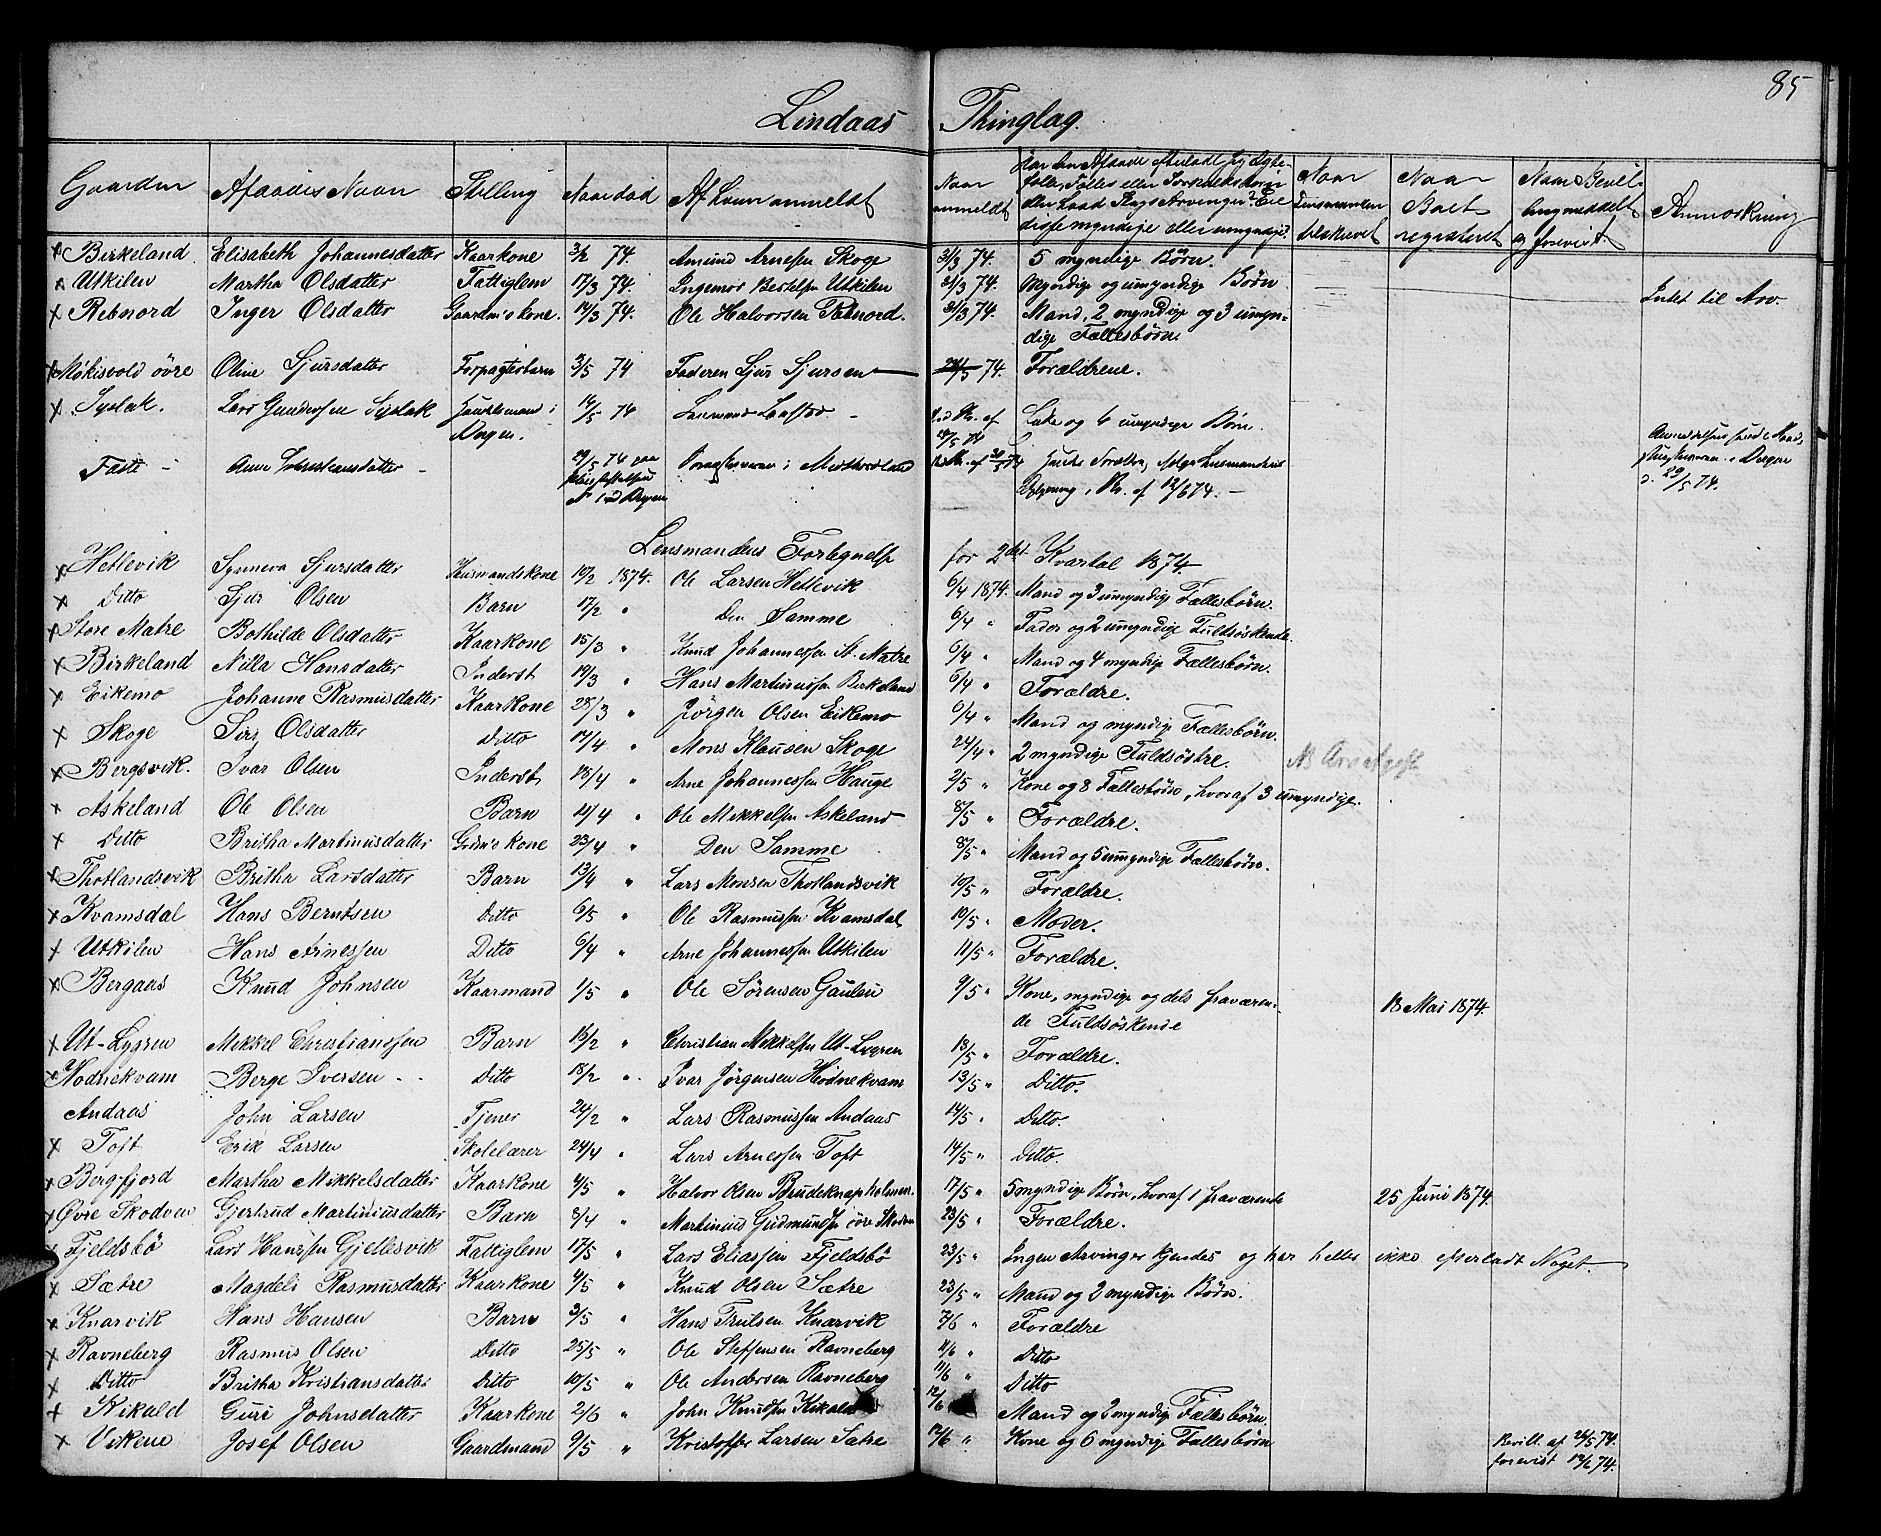 85
Lindaas Thinglag.
Gaarden | Afdødes Navn | Stilling | Naar død | Af hvem anmeldt | Naar anmeldt | Har den Afdøde efterladt sig Ægtefolk, Fælles eller Særkuldsbørn eller hvad Slags Arvinger? Ere disse myndige eller umyndige? | Naar Lensmanden beskrevet | Naar Boet registeret | Naar Bevilling meddelt og forevist | Anmærkning
x Birkeland | Elisabeth Johannesdatter | Kaarkone | 3/2 74. | Amund Arnessen Skoge | 31/3 74. | 5 myndige Børn.
x Utkilen | Martha Olsdatter | Fattiglem | 17/3 74. | Ingemor Bertelsen Utkilen | 31/3 74. | Myndige og umyndige Børn | Intet til Arv.
x Rebnord | Inger Olsdatter | Gaardm's Kone. | 14/3 74. | Ole Halvorsen Rebnord. | 31/3 74. | Mand, 2 myndige og 3 umyn-
dige Fællesbørn
x Møkisvold övre | Oline Sjursdatter | Forpagterbarn | 3/5 74 | Faderen Sjur Sjursen | 74. | Forældrene.
x Syslak. | Lars Gundersen Syslak | Huusmand i Bergen. | 14/5 74 | Lensmand | 74 | Enke og 4 umyndige Børn.
Fatte | Anne | 29/5 74 paa N 1 ved Bergen | i Midthordland | 12/6 74. | 29/5 74.
Lensmandens Fortegnelse for 2det Kvartal 1874.
x Hetlevik | Synneva Sjursdatter | Huusmandskone | 10/2 1874. | Ole Larsen Hetlevik | 6/4 1874. | Mand og 3 umyndige Fællesbørn.
x Ditto | Sjur Olsen | Barn | 17/2 " | Den Samme | 6/4 " | Fader og 2 umyndige Fuldsøskende.
x Store Matre | Bothilde Olsdatter | Kaarkone | 15/3 " | Knud Johannessen St. Matre | 6/4 " | Mand og 4 myndige Fællesbørn.
x Birkeland | Nilla Hansdatter | Inderst | 19/3 " | Hans Martinussen Birkeland | 6/4 " | Forældre.
x Eikemo | Johanne Rasmusdatter | Kaarkone | 28/3 " | Jörgen Olsen Eikemo | 6/4 " | Mand og myndige Fællesbørn.
x Skoge | Siri Olsdatter | Ditto | 14/4 " | Mons Klausen Skoge | 24/4 " | 2 myndige Fuldsøstre.
x Bergsvik. | Ivar Olsen | Inderst | 15/4 " | Arne Johannessen Hauge | 2/5 " | Kone og 8 Fællesbørn, hvoraf 3 umyndige.
x Askeland | Ole Olsen | Barn | 11/4 " | Ole Mikkelsen Askeland | 8/5 " | Forældre.
x Ditto | Britha Martinusdatter | Grdm's Kone | 23/4 " | Den Samme | 8/5 " | Mand og 5 umyndige Fællesbørn.
x Thotlandsvik | Britha Larsdatter | Barn | 13/4 " | Lars Monsen Thotlandsvik | 10/5 " | Forældre.
x Kvamsdal | Hans Berntsen | Ditto | 6/5 " | Ole Rasmussen Kvamsdal | 10/5 " | Moder.
x Utkilen | Hans Arnessen | Ditto | 6/4 " | Arne Johannessen Utkilen | 11/5 " | Forældre.
x Bergaas | Knud Johnsen | Kaarmand | 1/5 " | Ole Sörensen Gaulen | 9/5 " | Kone, myndige og dels fraværen-
de Fuldsöskende | 18 Mai 1874.
x Ut-Lygren | Mikkel Christianssen | Barn | 16/2 " | Christian Mikkelsen Ut-Lygren | 13/5 " | Forældre.
x Hodnekvam | Berge Iversen | Ditto | 18/2 " | Ivar Jörgensen Hodnekvam | 13/5 " | Ditto.
Andaas | John Larsen | Tjener | 24/2 " | Lars Rasmussen Andaas | 14/5 " | Ditto.
x Toft | Erik Larsen | Skolelærer | 24/4 " | Lars Arnessen Toft | 14/5 " | Ditto.
x Bergfjord | Martha Mikkelsdatter | Kaarkone | 9/5 " | Halvor Olsen Brudeknapholmen. | 17/5 " | 5 myndige Børn, hvoraf 1 fraværende | 25 Juni 1874.
x Øvre Skodven | Gjertrud Martinusdatter | Barn | 8/4 " | Martinus Gudmundsen övre Skodven | 23/5 " | Forældre.
x Fjeldsbö | Lars Hanssen Gjellesvik | Fattiglem | 17/5 " | Lars Eliassen Fjeldsbö | 23/5 " | Ingen Arvinger kjendes og har heller ikke efterladt Noget.
x Sætre | Magdeli Rasmusdatter | Kaarkone | 4/5 " | Knud Olsen Sætre | 23/5 " | Mand og 2 myndige Børn.
x Knarvik | Hans Hansen | Barn | 3/5 " | Hans Trulsen Knarvik | 7/6 " | Forældre
x Ravneberg | Rasmus Olsen | Ditto | 25/5 " | Ole Steffensen Ravneberg | 11/6 " | Ditto
x Ditto | Britha Kristiansdatter | Ditto | 10/5 " | Ole Andersen Ravneberg | 11/6 " | Ditto
x Kikald | Guri Johnsdatter | Kaarkone | 2/6 " | John Knudsen Kikald | 12/6 | Mand og 2 myndige Fællesbørn.
x Vikene | Josef Olsen | Gaardmand | 9/5 " | Kristoffer Larsen Sætre | 12/6 " | Kone og 6 myndige Fællesbørn | Bevill. af 29/5 74.
forevist 12/6 74.